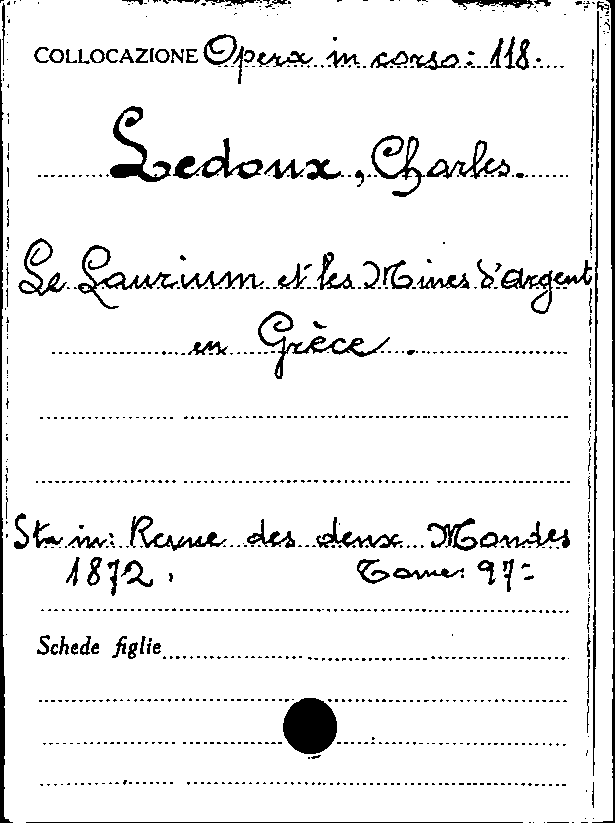 COLLOCAZIONE Opera in corso: 118.
Ledoux, Charles.
Le Laurium et les Mines d'argent
en Grèce.
Sta in: Revue des deux Mondes
1872. Tome: 97=
Schede figlie